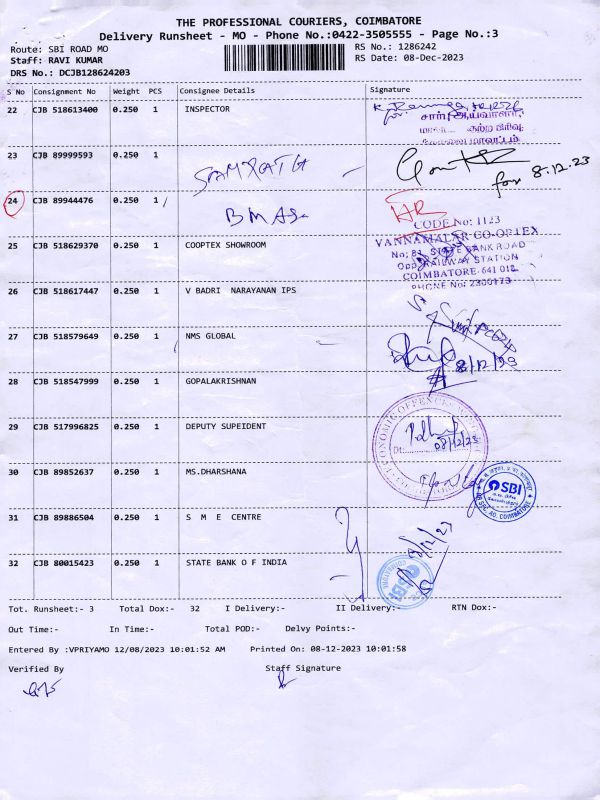 THE PROFESSIONAL COURIERS, COIMBATORE
Delivery Runsheet - MO - Phone No.:0422-3505555 - Page No.:3
Route: SBI ROAD MO
RS No.: 1286242
Staff: RAVI KUMAR
RS Date: 08-Dec-2023
DRS No.: DCJB128624203
S No Consignment No Weight PCS Consignee Details Signature
22 CJB 518613400 0.250 1 INSPECTOR
23 CJB 89999593 0.250 1
SAMPATH
for 8.12.23
24 CJB 89944476 0.250 1
HR
CODE No: 1123
25 CJB 518629370 0.250 1 COOPTEX SHOWROOM
VANNAMALAR CO-OPTEX
STATE BANK ROAD
Opp. RAILWAY STATION
COIMBATORE-641 018
PHONE No: 2300173
26 CJB 518617447 0.250 1 V BADRI NARAYANAN IPS
27 CJB 518579649 0.250 1 NMS GLOBAL
8/12/23
28 CJB 518547999 0.250 1 GOPALAKRISHNAN
29 CJB 517996825 0.250 1 DEPUTY SUPEIDENT
08/12/23
30 CJB 89852637 0.250 1 MS.DHARSHANA
SBI
31 CJB 89886504 0.250 1 S M E CENTRE
32 CJB 80015423 0.250 1 STATE BANK O F INDIA
SBI
Tot. Runsheet:- 3 Total Dox:- 32 I Delivery:- II Delivery:- RTN Dox:-
Out Time:- In Time:- Total POD:- Delvy Points:-
Entered By :VPRIYAMO 12/08/2023 10:01:52 AM Printed On: 08-12-2023 10:01:58
Verified By Staff Signature